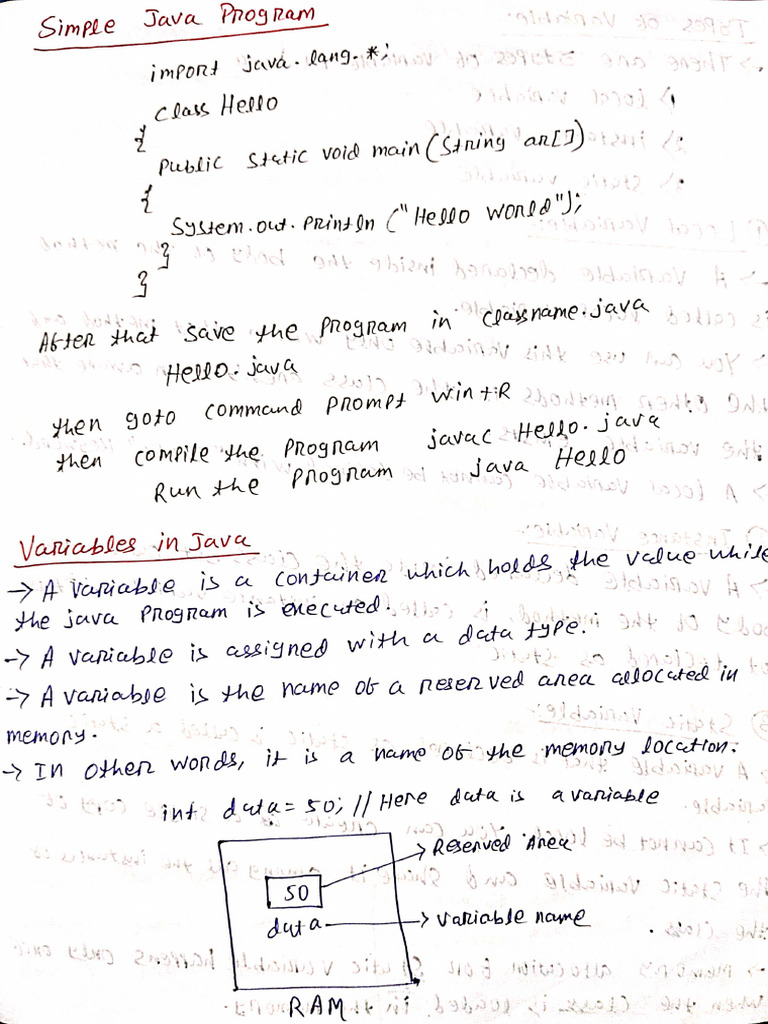 Simple Java Program
import java.lang.*;
class Hello
{
public static void main(String ar[])
{
System.out.println("Hello World");
}
}
After that save the program in classname.java
Hello.java
then goto command prompt win+R
then compile the program javac Hello.java
Run the program java Hello
Variables in Java
→ A variable is a container which holds the value while
the java program is executed.
→ A variable is assigned with a data type.
→ A variable is the name of a reserved area allocated in
memory.
→ In other words, it is a name of the memory location.
int data = 50; // Here data is a variable
→ Reserved Area
50
data → variable name
RAM